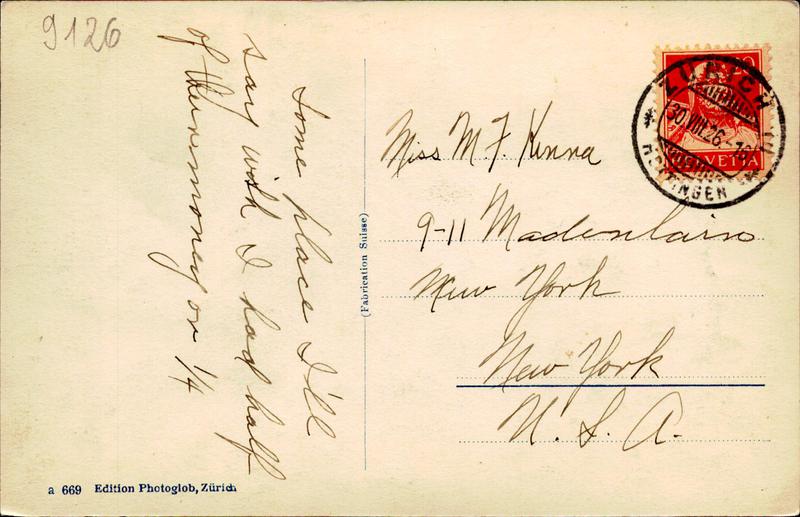 9126
Some place I'll
say wish I had half
of their money or 1/4
Miss M. F. Kenna
9-11 Maden Lain
New York
New York
U. S. A.
ZÜRICH
30.VIII.26.-16
HOTTINGEN
HELVETIA
(Fabrication Suisse)
a 669 Edition Photoglob, Zürich